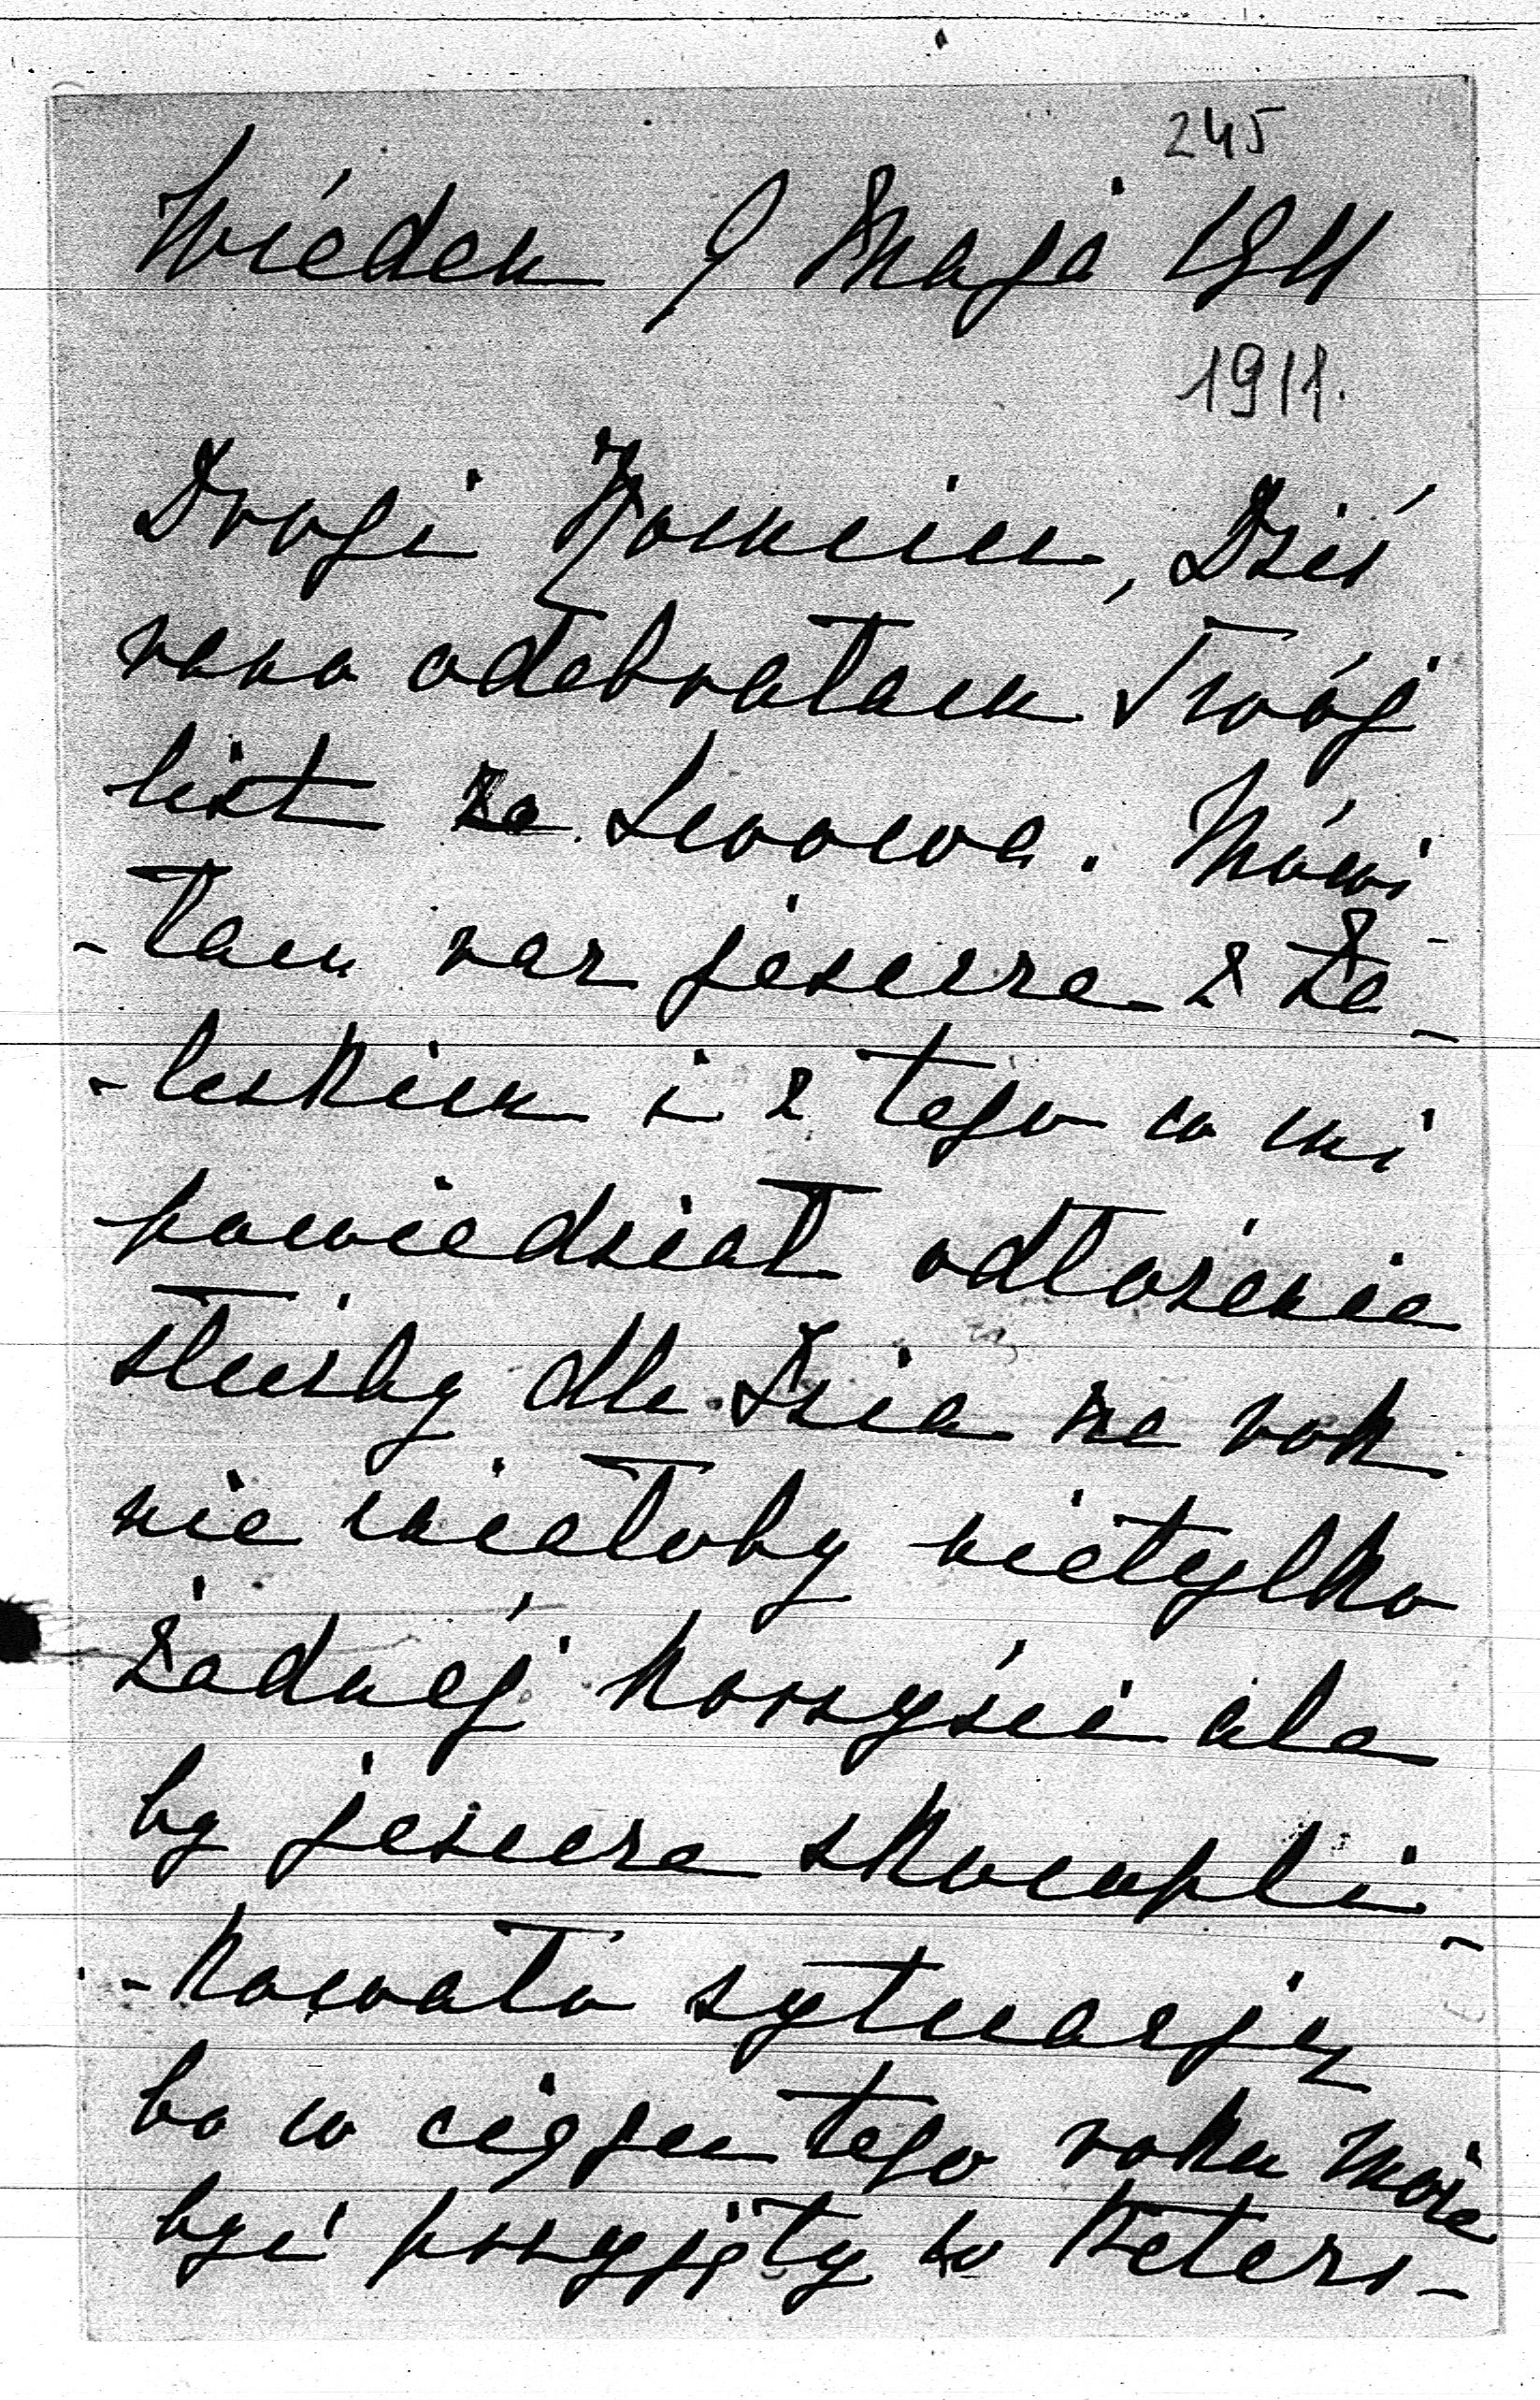 245
Wiédeń 9 Maja 1911
1911.
Drogi Romciu, Dziś
rano odebrałam Twój
list ze Lwowa. Mówi
-łam raz jeszcze z Za-
-leskim i z tego co mi
powiedział odłożenie
służby dla Izia na rok
nie miałoby nietylko
żadnej korzyści ale
by jeszcze skompli-
-kowało sytuację
bo w ciągu tego roku może
być przyjęty w Peters-